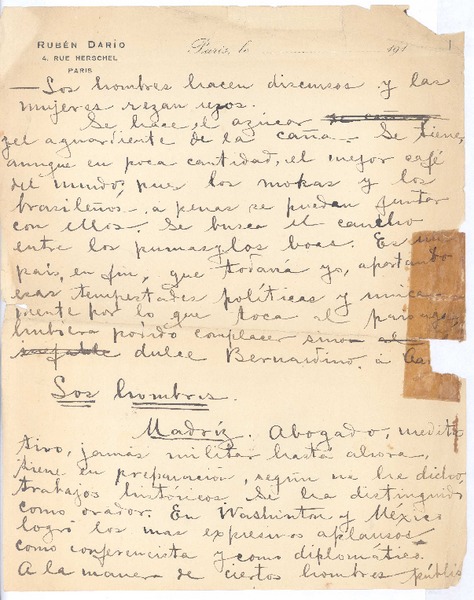 RUBÉN DARÍO
4. RUE HERSCHEL
PARIS
Paris, le 190
1
— Los hombres hacen discursos y las
mujeres rezan
Se hace el azúcar
y el aguardiente de la caña. — Se tiene,
aunque en poca cantidad, el mejor café
del mundo, pues los mokas y los
brasileños a penas se pueden juntar
con ellos. Se busca el caucho
entre los pumas y los boas. Es un
país, en fin, que todavía yo, apartando
esas tempestades políticas y unica
mente por lo que toca al paisaje,
hubiera podido complacer sino al
inefable dulce Bernardino, a
Los hombres.
Madríz. Abogado, medita
tivo, jamás militar hasta ahora,
tiene en preparación, según me ha dicho
trabajos históricos. Se ha distinguido
como orador. En Washington y México
logró los mas expresivos aplausos
como conferencista y como diplomático.
A la manera de ciertos hombres públi